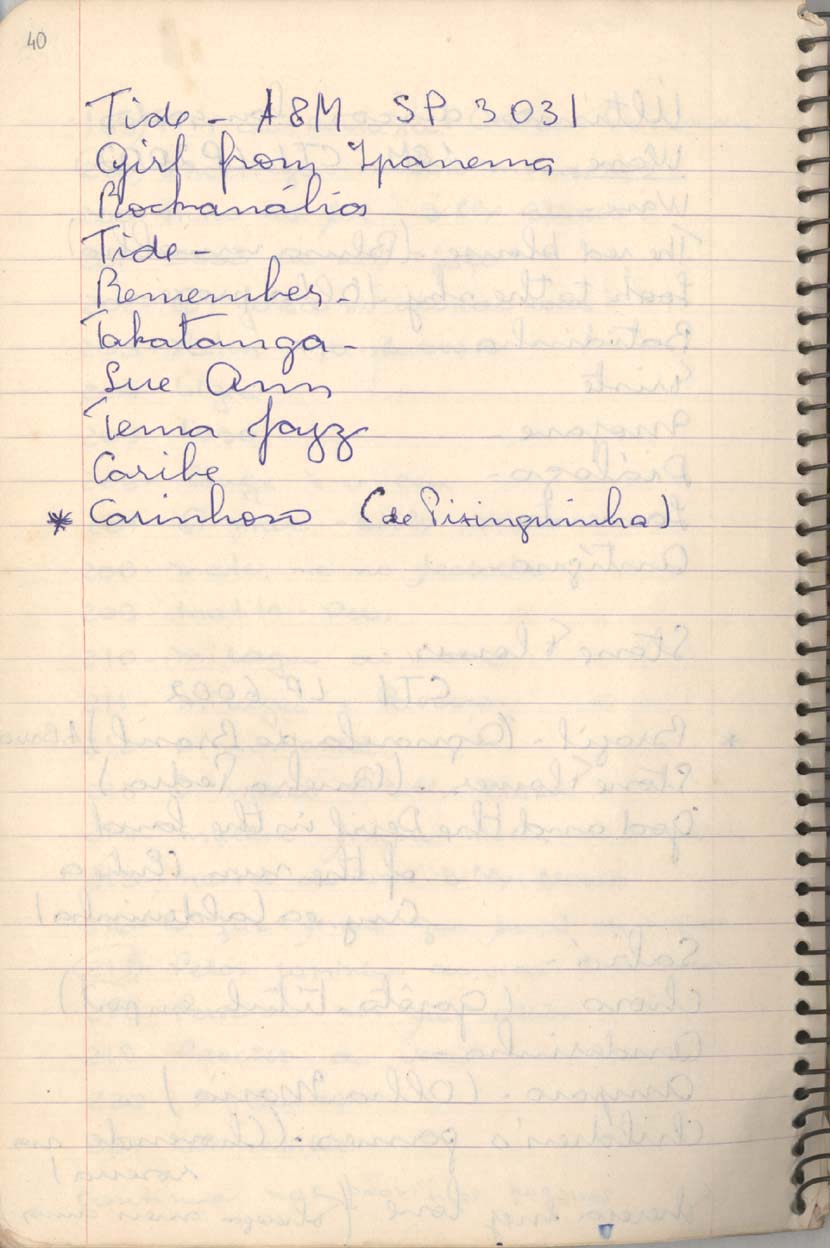 40
Tide - A&M SP 3031
Girl from Ipanema
Rockanália
Tide -
Remember -
Takatanga -
Sue Ann
Tema Jazz
Caribe
* Carinhoso (de Pixinguinha)